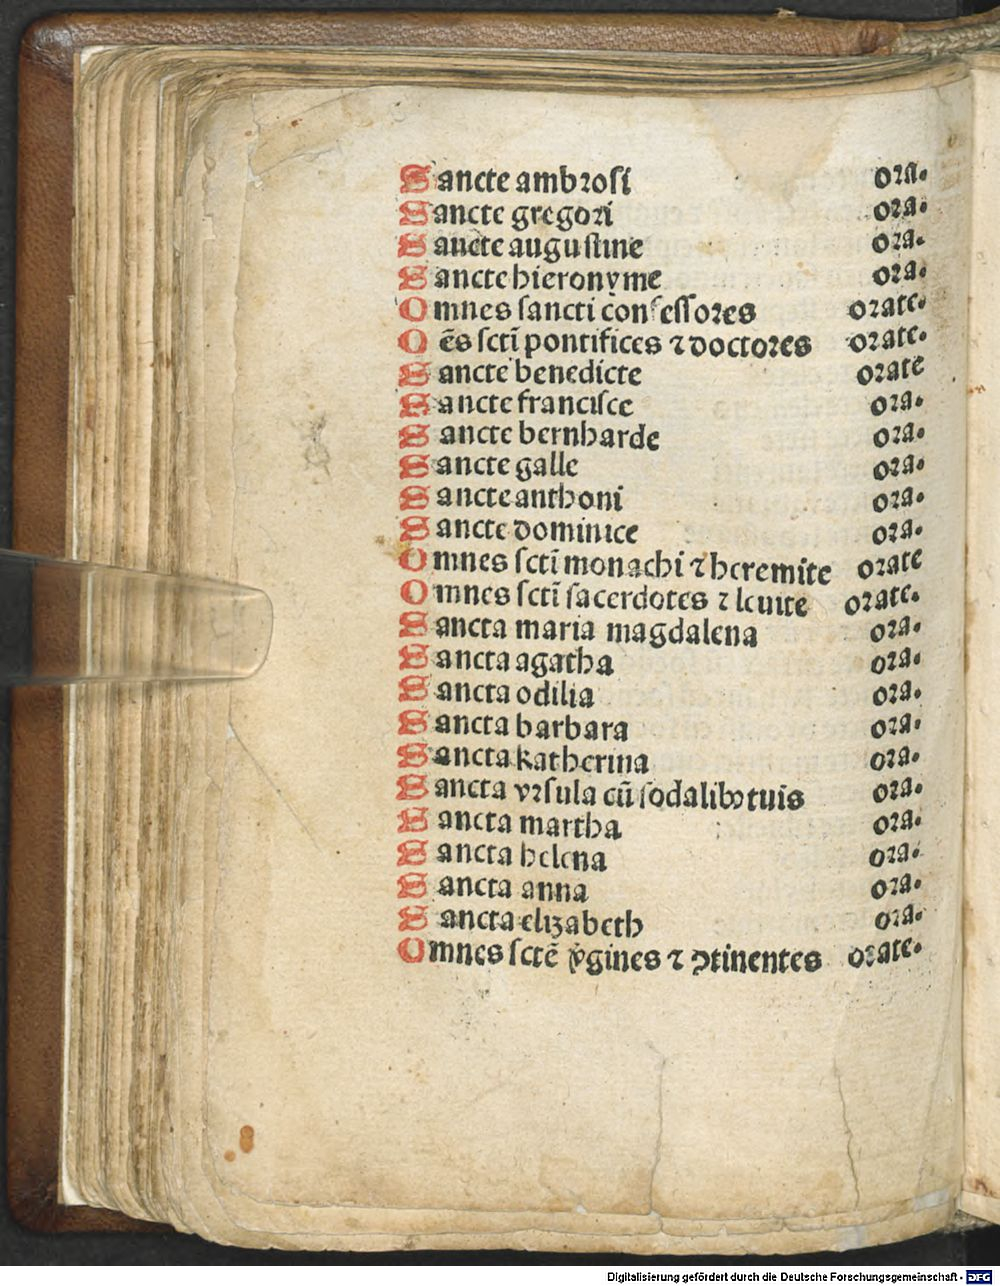 Sancte ambrosi ora.
Sancte gregori ora.
Sancte augustine ora.
Sancte hieronyme ora.
Omnes sancti confessores orate.
Oēs sctī pontifices ⁊ doctores orate.
Sancte benedicte orate
Sancte francisce ora.
Sancte bernharde ora.
Sancte galle ora.
Sancte anthoni ora.
Sancte dominice ora.
Omnes sctī monachi ⁊ heremite orate
Omnes sctī sacerdotes ⁊ leuite orate.
Sancta maria magdalena ora.
Sancta agatha ora.
Sancta odilia ora.
Sancta barbara ora.
Sancta katherina ora.
Sancta vrsula cū sodalibꝫ tuis ora.
Sancta martha ora.
Sancta helena ora.
Sancta anna ora.
Sancta elizabeth ora.
Omnes sctē v̓gines ⁊ ꝯtinentes orate.
Digitalisierung gefördert durch die Deutsche Forschungsgemeinschaft - DFG